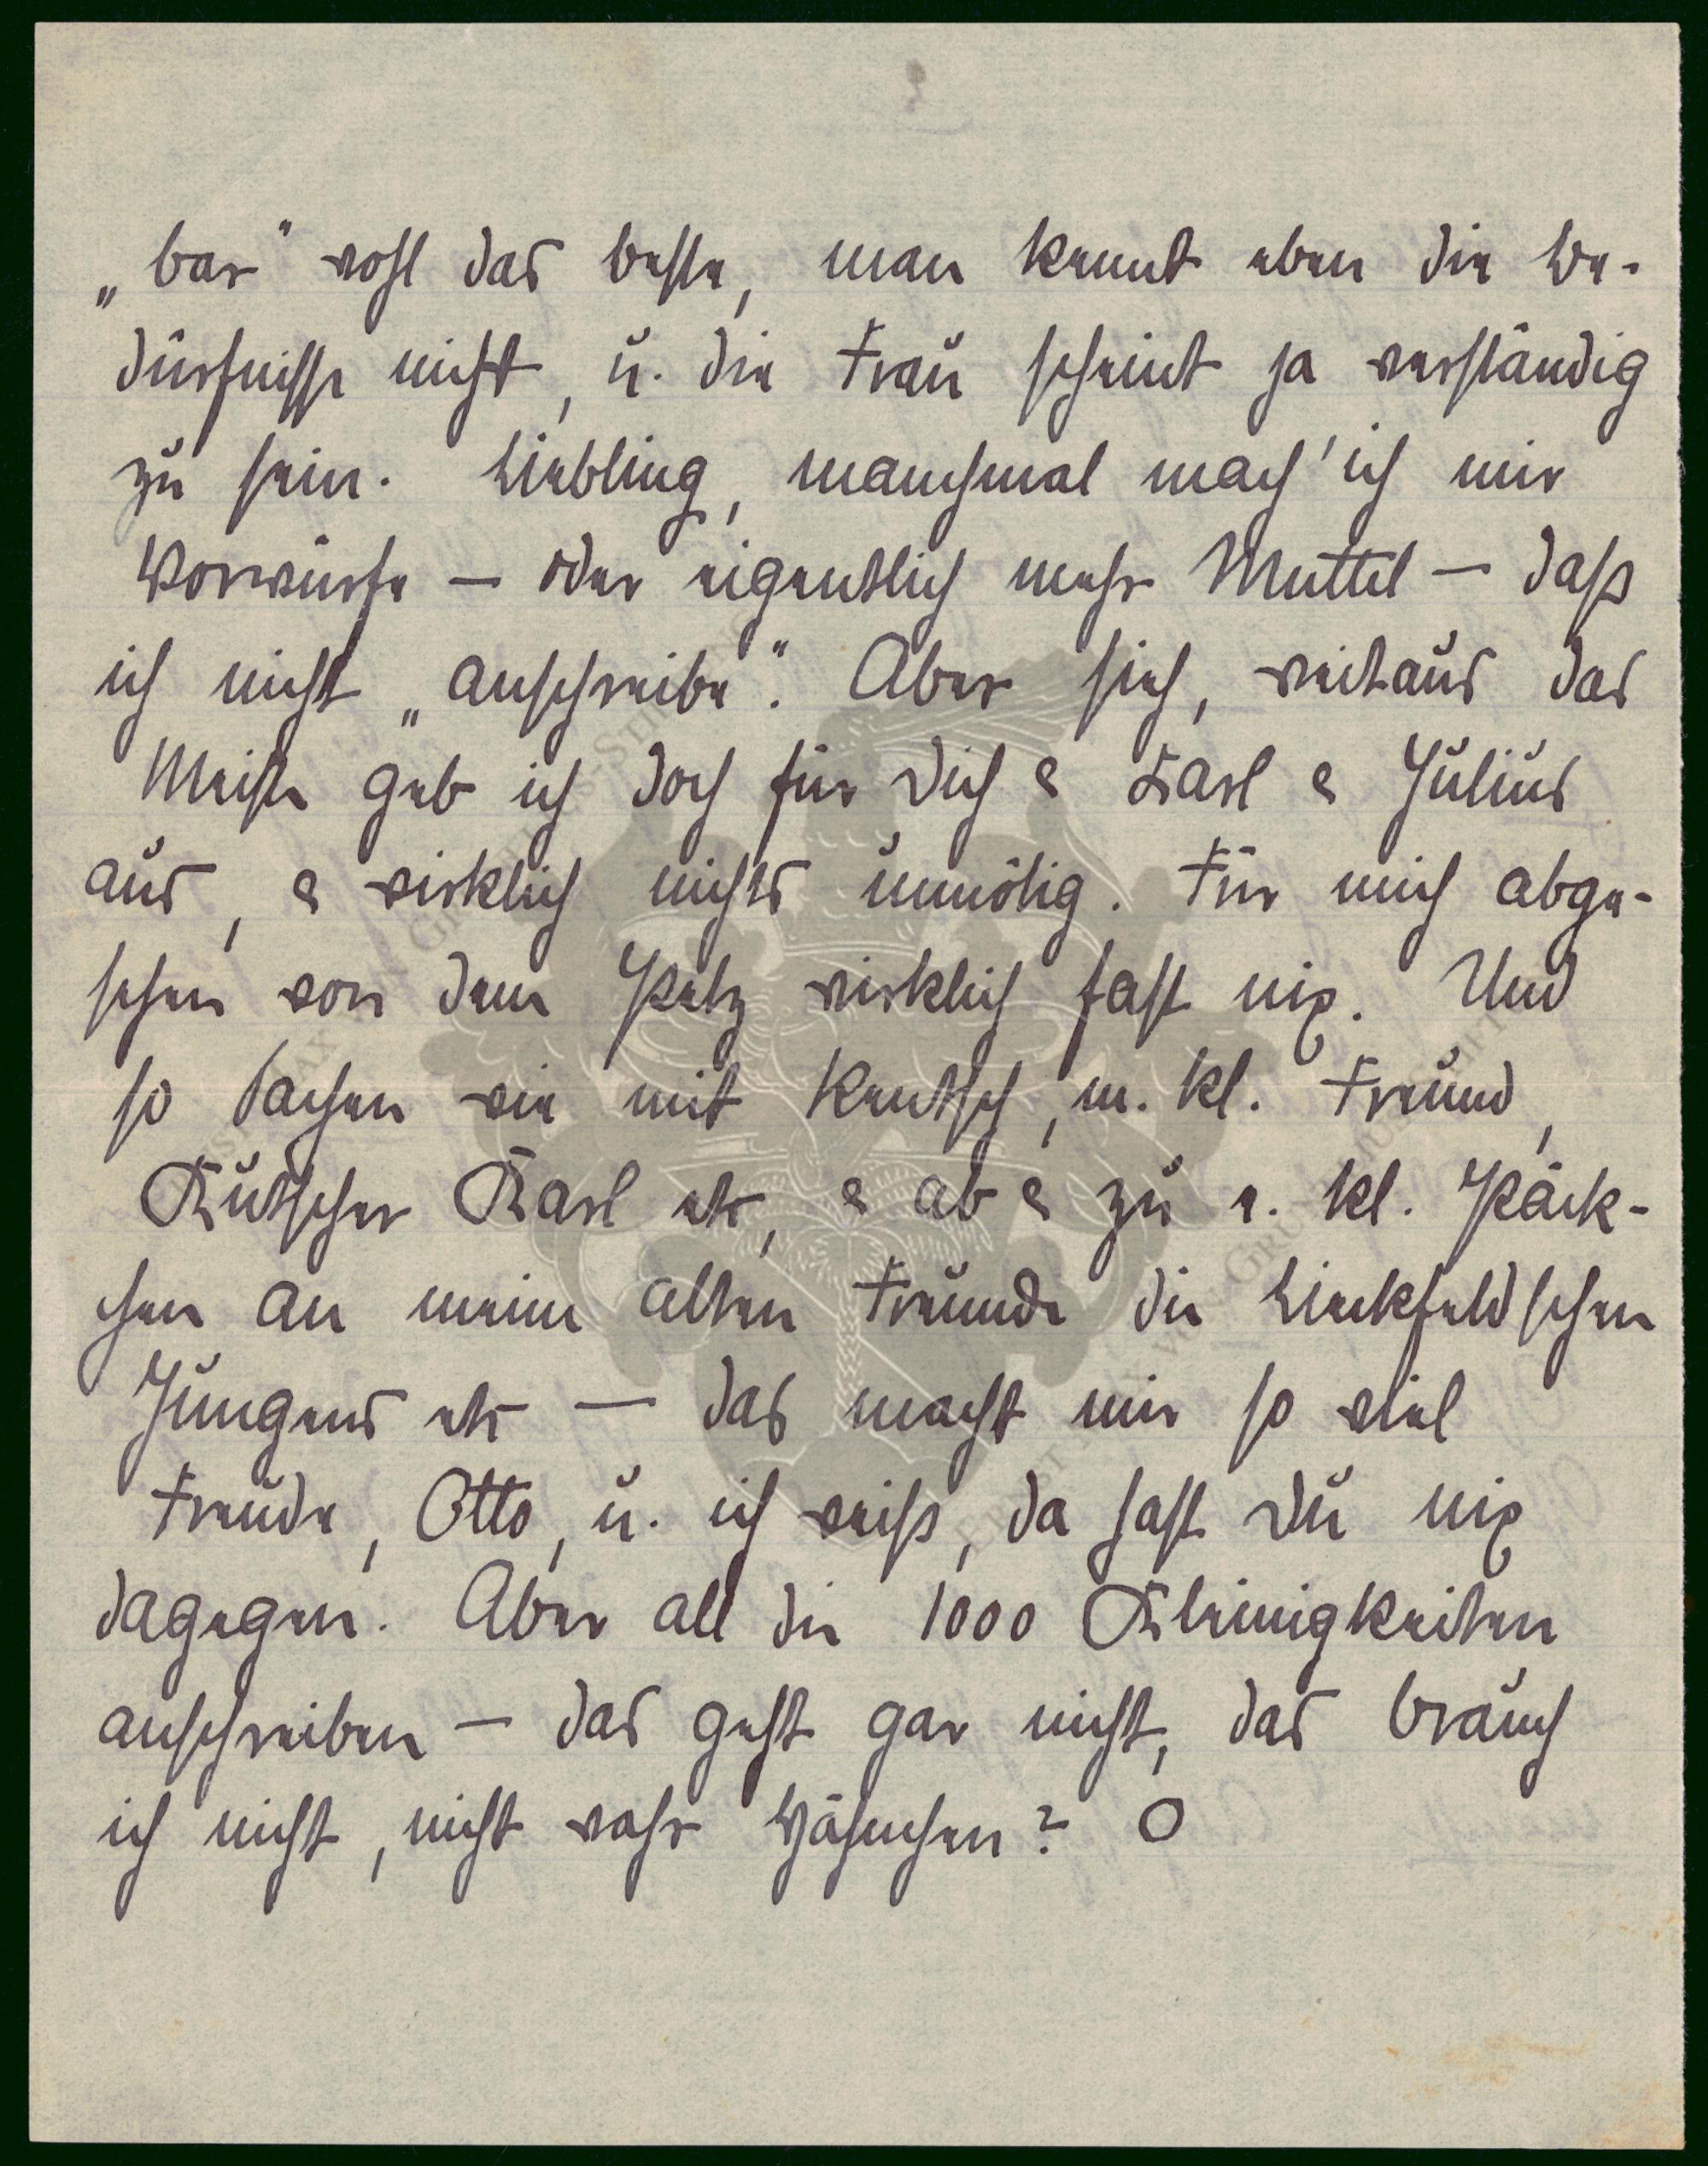 „bar“ wohl das beste, man kennt eben die Be-
dürfnisse nicht, u. die Frau scheint ja verständig
zu sein. Liebling, manchmal mach' ich mir
Vorwürfe — oder eigentlich mehr Muttel — daß
ich nicht „anschreibe“. Aber sieh, weitaus das
Meiste geb ich doch für Dich & Karl & Julius
aus, & wirklich nichts unnötig. Für mich abge-
sehen von dem Pelz wirklich fast nix. Und
so Sachen wie mit Kentsch, m. kl. Freund,
Kutscher Karl etc, & ab & zu e. kl. Päck-
chen an meine alten Freunde die Lieckfeldschen
Jungens etc — das macht mir so viel
Freude, Otto, u. ich weiß, da hast Du nix
dagegen. Aber all die 1000 Kleinigkeiten
anschreiben — das geht gar nicht, das brauch
ich nicht, nicht wahr Hähnchen? O